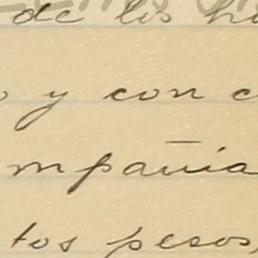 de los h
y con c
mpañia
tos pesos,